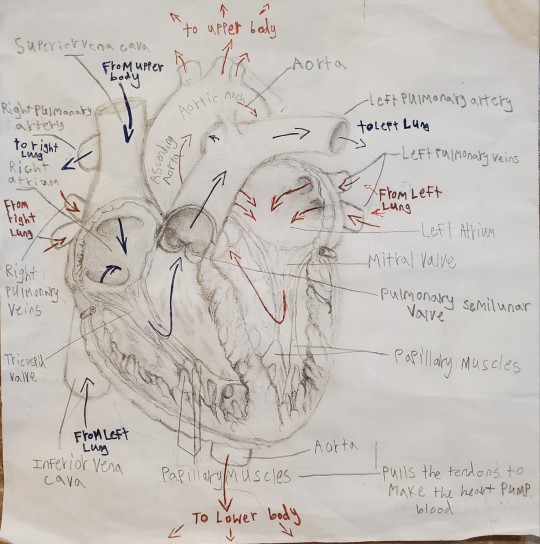 to upper body
Superior vena cava
From upper
body
Aorta
Aortic Arch
Right Pulmonary
artery
Left Pulmonary artery
to right
Lung
to Left Lung
Ascending
Aorta
Right
atrium
Left Pulmonary veins
From
right
Lung
From Left
Lung
Left Atrium
Right
Pulmonary
Veins
Mitral Valve
Pulmonary semilunar
Valve
Tricuspid
valve
Papillary Muscles
From Left
Lung
Inferior Vena
cava
Aorta
Papillary Muscles
Pulls the tendons to
Make the heart PUMP
blood
To Lower body